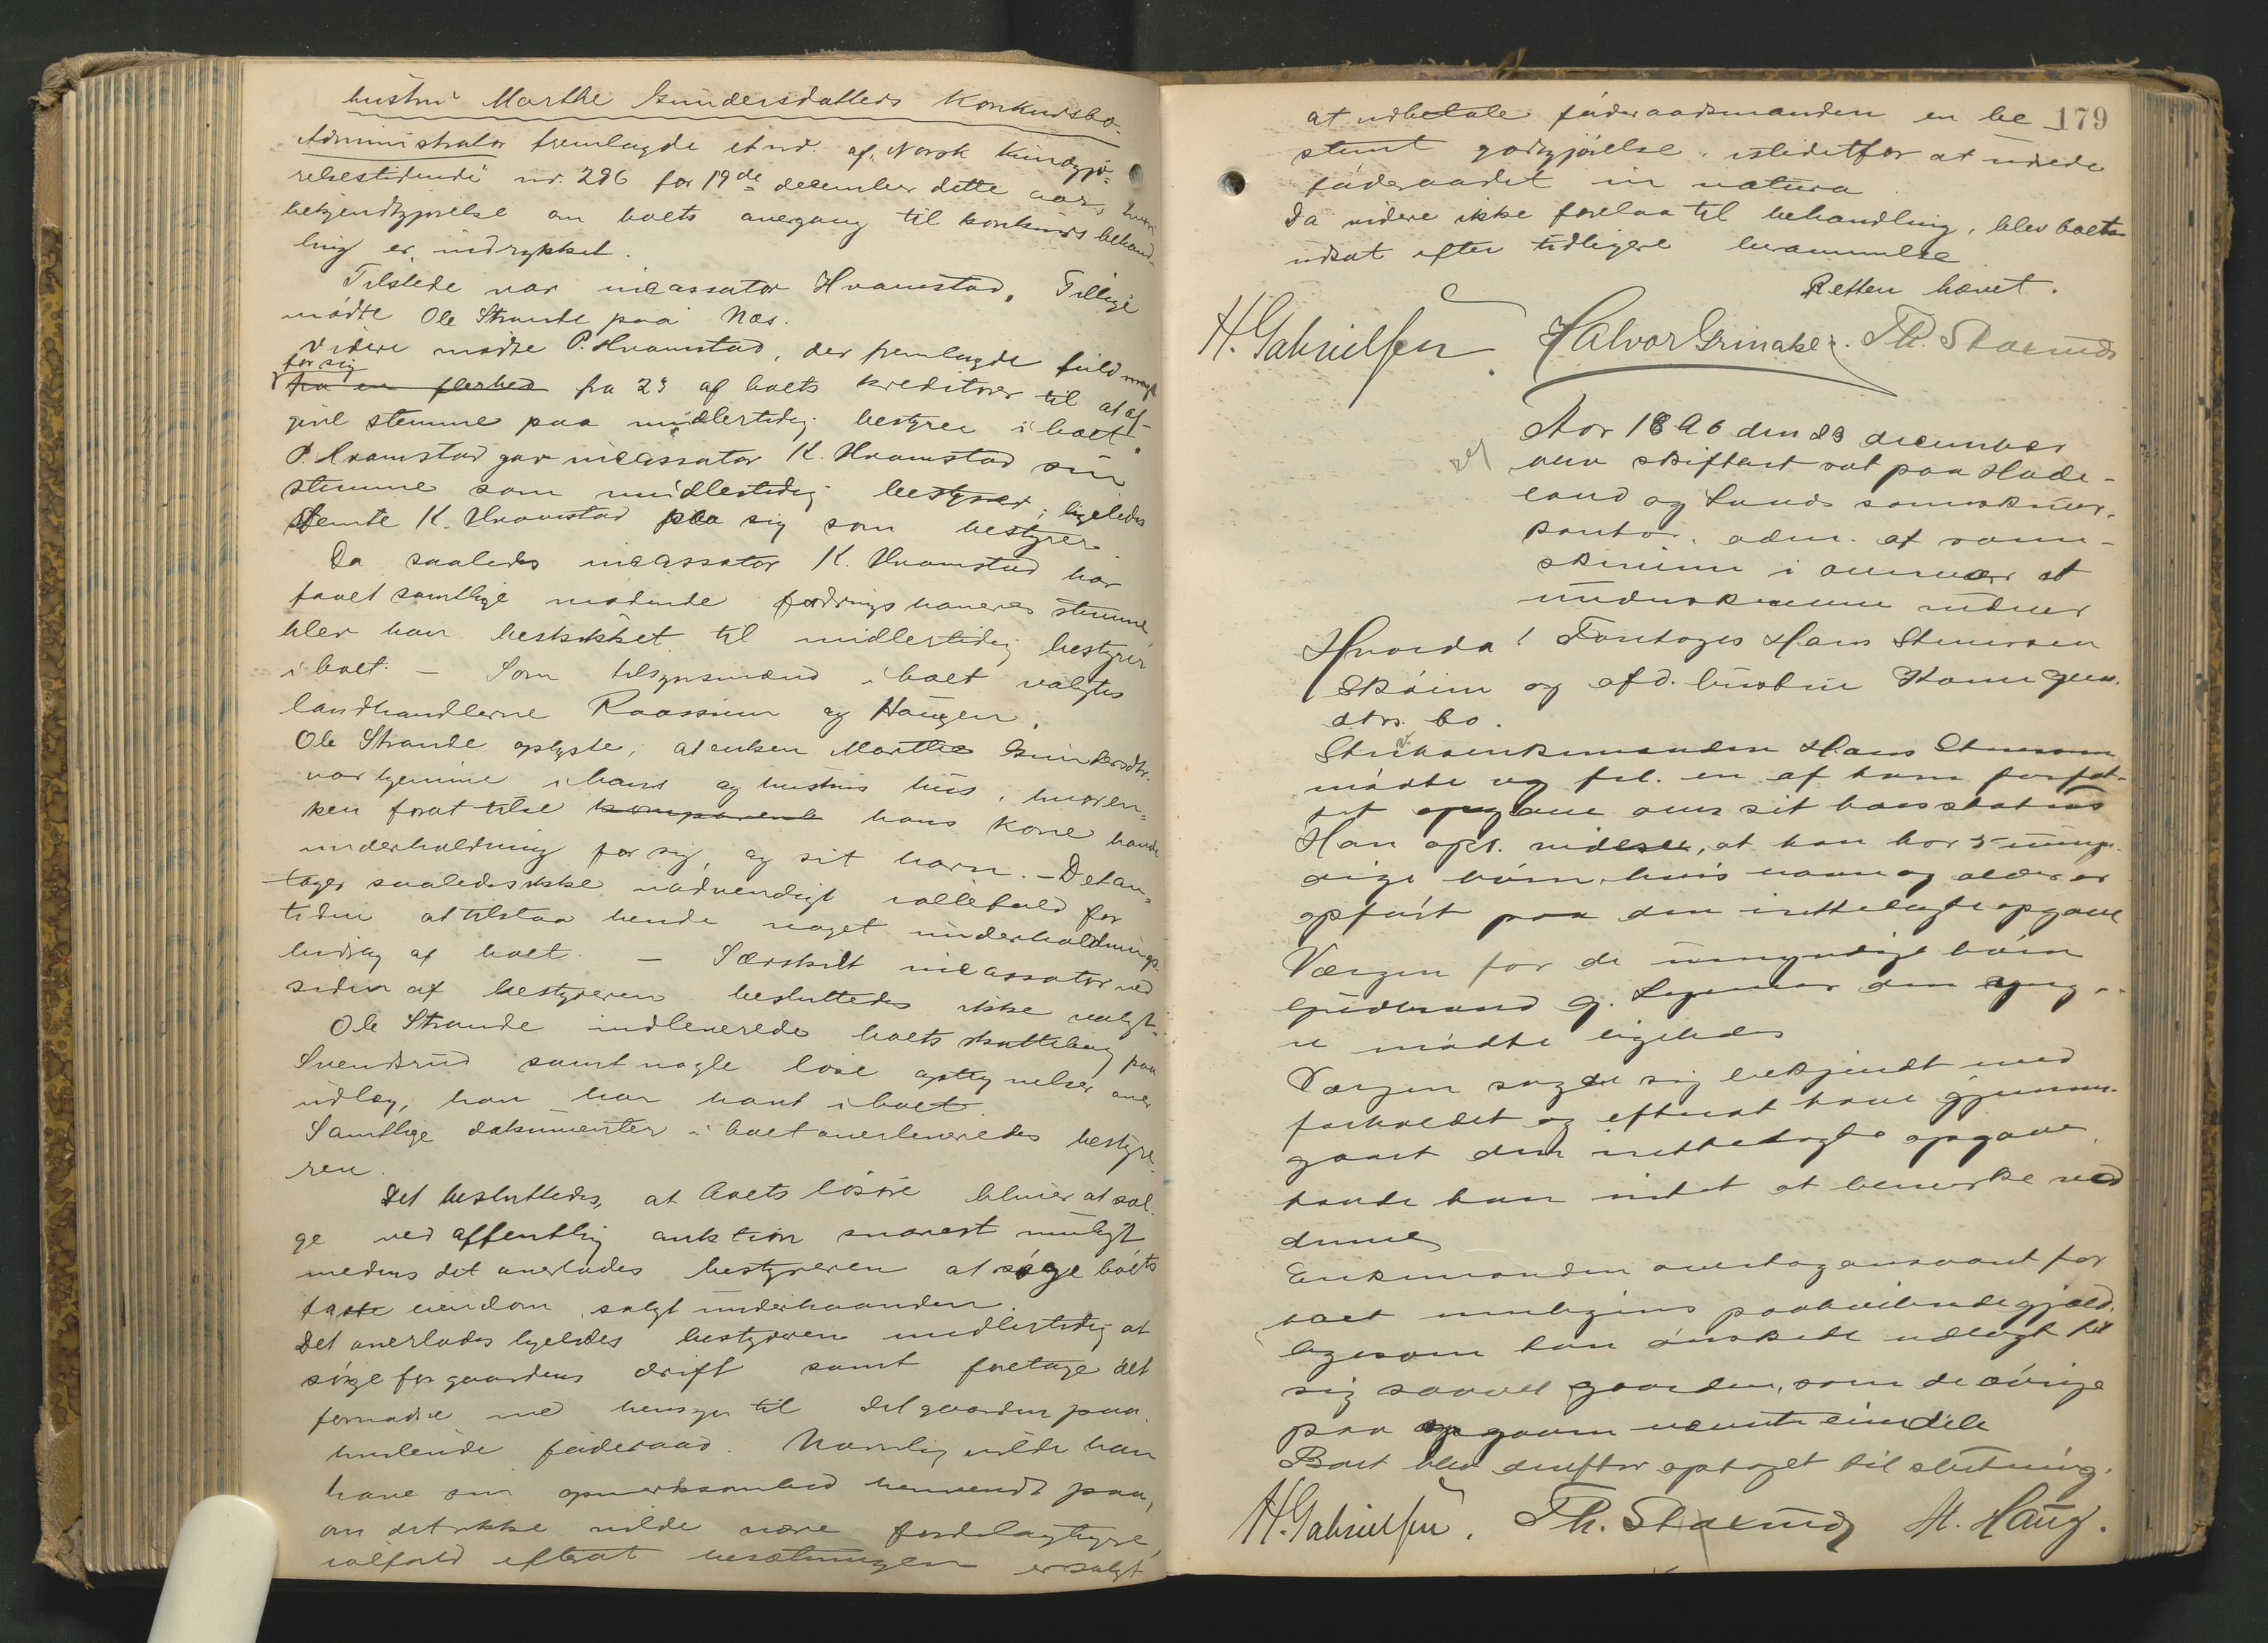 hustru Marthe Gundersdatters Konkursbo.
Administrator fremlagde et nr. af "Norsk Kundgjø-
relsestidende" nr. 296 for 19de december dette aar, hvori
bekjendtgjørelse om boets overgang til konkursbehand-
ling er indrykket.
Tilstede var incassator Hvamstad. Tillige
mødte Ole Strande paa Næs.
Videre mødte P. Hvamstad, der fremlagde fuldmagt
for sig
fra en flerhed fra 23 af boets kreditorer til at af-
give stemme paa midlertidig bestyrer i boet.
P. Hvamstad gav incassator K. Hvamstad sin
stemme som midlertidig bestyrer; ligeledes
stemte K. Hvamstad paa sig som bestyrer.
Da saaledes incassator K. Hvamstad har
faaet samtlige mødende fordringshaveres stemme,
blev han beskikket til midlertidig bestyrer
i boet. — Som tilsynsmænd i boet valgtes
landhandlerne Raassum og Haugen.
Ole Strande oplyste, at enken Marthe Gundersdtr.
var hjemme i hans og hustrus hus, hvor en-
ken for at tilse komparent hans kone havde
underholdning for sig og sit barn. — Det an-
tages saaledes ikke nødvendigt ialfald for
tiden at tilstaa hende noget underholdnings-
bidrag af boet. — Særskilt incassator ved
siden af bestyreren besluttedes ikke valgt.
Ole Strande indleverede boets skattebog paa
Svendsrud samt nogle løse optegnelser over
udlæg, han har havt i boet.
Samtlige dokumenter i boet overleveredes bestyre-
ren.
Det besluttedes, at boets løsøre bliver at sæl-
ge ved offentlig auktion snarest muligt
medens det overlades bestyreren at søge boets
faste eiendom solgt underhaanden.
Det overlades ligeledes bestyreren midlertidig at
sørge for gaardens drift samt foretage det
fornødne med hensyn til det gaarden paa-
hvilende føderaad. Navnlig vilde han
have sin opmerksomhed henvendt paa,
om det ikke vilde være fordelagtigere,
ialfald efterat besætningen er solgt
179
at udbetale føderaadsmanden en be-
stemt godtgjørelse, istedetfor at udrede
føderaadet in natura.
Da videre ikke forelaa til behandling, blev boet
udsat efter tidligere berammelse
Retten hævet.
H. Gabrielsen. Halvor Grinaker. Th. Staxrud
Aar 1896 den 23 december
blev skifteret sat paa Hade-
land og Lands sorenskriver-
kontor. adm. af soren-
skriveren i overvær af
underskrevne vidner
Hvorda! Foretoges Hans Stensen
Skøien og afd. hustru Karen Gun.
dtrs. bo.
Enkemanden Hans
mødte og frl. en af ham forfat-
tet opgave over sit boes status
Han opl. videre, at han har 5 umyn-
dige børn, hvis navn og alder er
opført paa den irettelagte opgave
Værgen for de umyndige børn
Gudbrand G. den yng-
re mødte ligeledes
Værgen sagde sig bekjendt med
forholdet og efterat have gjennem-
gaaet den irettelagte opgave
havde han intet at bemerke ved
denne
Enkemanden overtog ansvaret for
boet muligens paahvilende gjæld,
ligesom han ønskede udlagt til
sig saavel gaarden, som de øvrige
paa opgaven nævnte eiendele
Boet blev derefter optaget til slutning.
H. Gabrielsen. Th. Staxrud H. Haug.